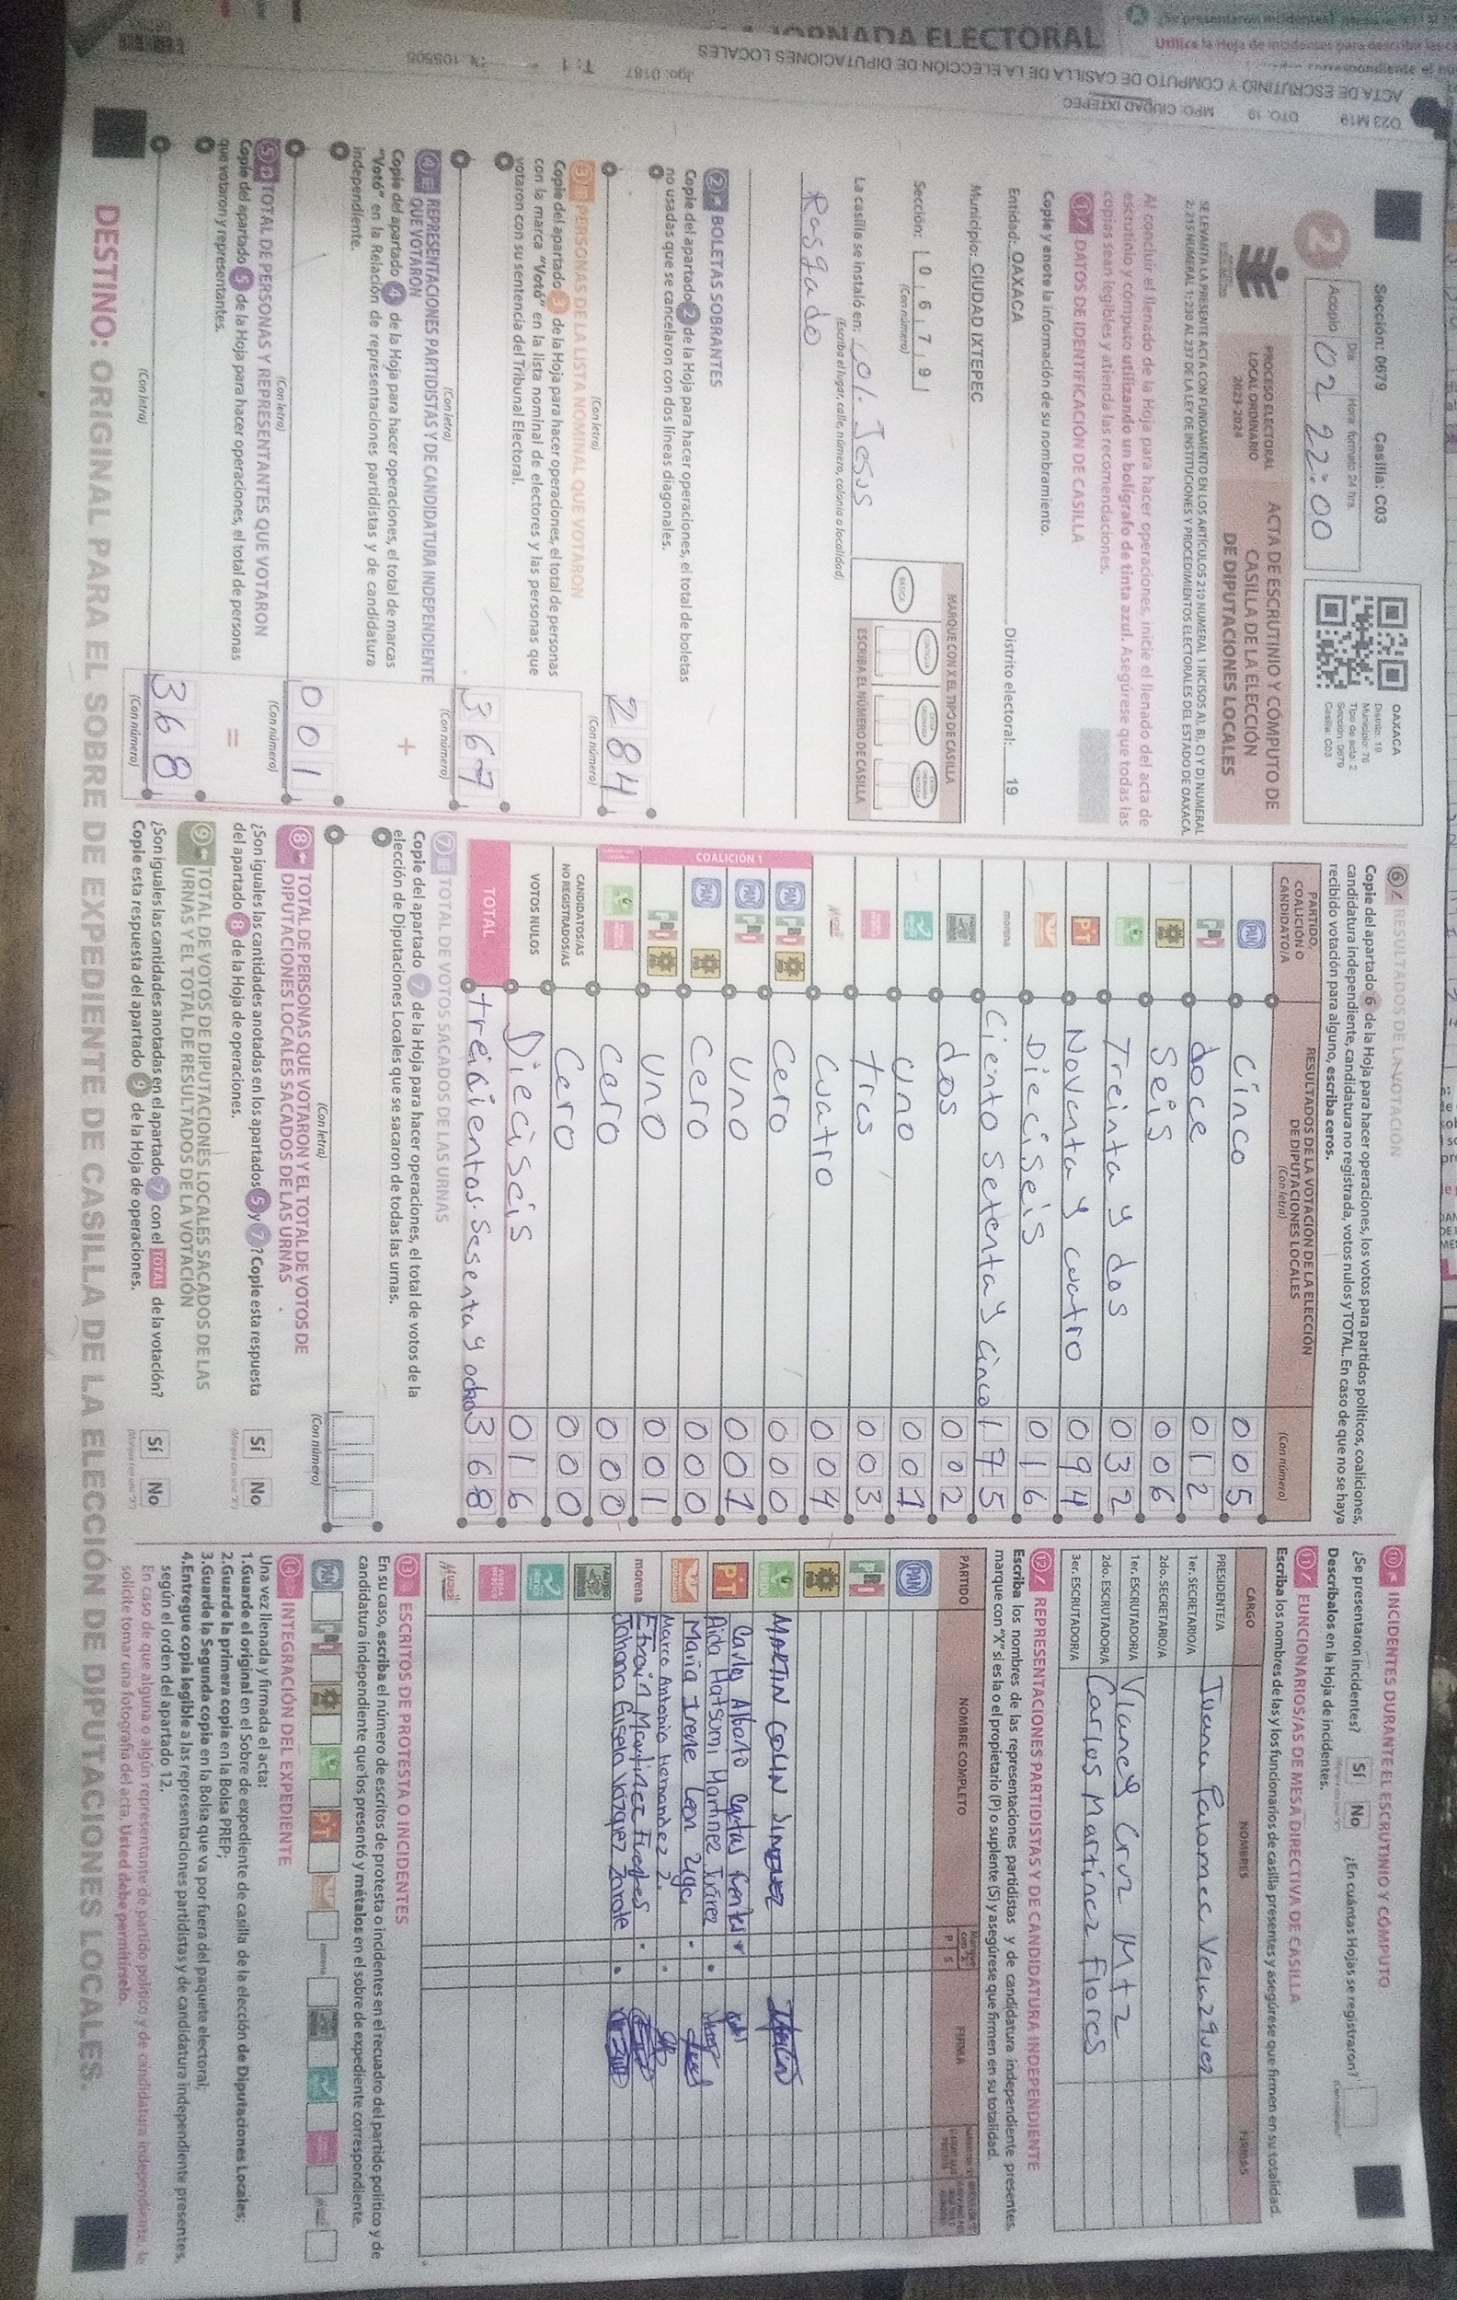 Sección: 0679 Casilla: C03
2
Día Hora formato 24 hrs.
Acopio 02 22:00
OAXACA
Distrito: 19
Municipio: 76
Tipo de acta: 2
Sección: 0679
Casilla: C03
PROCESO ELECTORAL
LOCAL ORDINARIO
2023-2024
ACTA DE ESCRUTINIO Y CÓMPUTO DE
CASILLA DE LA ELECCIÓN
DE DIPUTACIONES LOCALES
SE LEVANTA LA PRESENTE ACTA CON FUNDAMENTO EN LOS ARTÍCULOS 210 NUMERAL 1 INCISOS A), B), C) Y D) NUMERAL
2; 215 NUMERAL 1; 230 AL 237 DE LA LEY DE INSTITUCIONES Y PROCEDIMIENTOS ELECTORALES DEL ESTADO DE OAXACA.
Al concluir el llenado de la Hoja para hacer operaciones, inicie el llenado del acta de
escrutinio y cómputo utilizando un bolígrafo de tinta azul. Asegúrese que todas las
copias sean legibles y atienda las recomendaciones.
1 DATOS DE IDENTIFICACIÓN DE CASILLA
Copie y anote la información de su nombramiento.
Entidad: OAXACA Distrito electoral: 19
Municipio: CIUDAD IXTEPEC
Sección: 0679
(Con número)
MARQUE CON X EL TIPO DE CASILLA
BÁSICA
ESCRIBA EL NÚMERO DE CASILLA
La casilla se instaló en: Col. Jesus
(Escriba el lugar, calle, número, colonia o localidad)
Rasgado
2 BOLETAS SOBRANTES
Copie del apartado 2 de la Hoja para hacer operaciones, el total de boletas
no usadas que se cancelaron con dos líneas diagonales.
284
(Con letra) (Con número)
3 PERSONAS DE LA LISTA NOMINAL QUE VOTARON
Copie del apartado 3 de la Hoja para hacer operaciones, el total de personas
con la marca "Votó" en la lista nominal de electores y las personas que
votaron con su sentencia del Tribunal Electoral.
367
(Con letra) (Con número)
4 REPRESENTACIONES PARTIDISTAS Y DE CANDIDATURA INDEPENDIENTE
QUE VOTARON
+
Copie del apartado 4 de la Hoja para hacer operaciones, el total de marcas
"Votó" en la Relación de representaciones partidistas y de candidatura
independiente.
001
(Con letra) (Con número)
5 TOTAL DE PERSONAS Y REPRESENTANTES QUE VOTARON
=
Copie del apartado 5 de la Hoja para hacer operaciones, el total de personas
que votaron y representantes.
368
(Con letra) (Con número)
6 RESULTADOS DE LA VOTACIÓN
Copie del apartado 6 de la Hoja para hacer operaciones, los votos para partidos políticos, coaliciones,
candidatura independiente, candidatura no registrada, votos nulos y TOTAL. En caso de que no se haya
recibido votación para alguno, escriba ceros.
PARTIDO,
COALICIÓN O
CANDIDATO/A
RESULTADOS DE LA VOTACIÓN DE LA ELECCIÓN
DE DIPUTACIONES LOCALES
(Con letra) (Con número)
PAN Cinco 005
PRI doce 012
Seis 006
Treinta y dos 032
PT Noventa y cuatro 094
Dieciseis 016
morena Ciento Setenta y cinco 175
dos 002
uno 001
tres 003
cuatro 004
COALICIÓN 1
PAN PRI Cero 000
PAN PRI Uno 001
PAN Cero 000
PRI uno 001
cero 000
CANDIDATOS/AS
NO REGISTRADOS/AS Cero 000
VOTOS NULOS Dieciseis 016
TOTAL treicientos. Sesenta y ocho 368
7 TOTAL DE VOTOS SACADOS DE LAS URNAS
Copie del apartado 7 de la Hoja para hacer operaciones, el total de votos de la
elección de Diputaciones Locales que se sacaron de todas las urnas.
(Con letra) (Con número)
8 TOTAL DE PERSONAS QUE VOTARON Y EL TOTAL DE VOTOS DE
DIPUTACIONES LOCALES SACADOS DE LAS URNAS
¿Son iguales las cantidades anotadas en los apartados 5 y 7? Copie esta respuesta
del apartado 8 de la Hoja de operaciones.
Sí No
9 TOTAL DE VOTOS DE DIPUTACIONES LOCALES SACADOS DE LAS
URNAS Y EL TOTAL DE RESULTADOS DE LA VOTACIÓN
¿Son iguales las cantidades anotadas en el apartado 7 con el TOTAL de la votación?
Copie esta respuesta del apartado 9 de la Hoja de operaciones.
Sí No
10 INCIDENTES DURANTE EL ESCRUTINIO Y CÓMPUTO
¿Se presentaron incidentes? Sí No ¿En cuántas Hojas se registraron?
Descríbalos en la Hoja de incidentes.
11 FUNCIONARIOS/AS DE MESA DIRECTIVA DE CASILLA
Escriba los nombres de las y los funcionarios de casilla presentes y asegúrese que firmen en su totalidad.
CARGO NOMBRES FIRMAS
PRESIDENTE/A
1er. SECRETARIO/A
2do. SECRETARIO/A
1er. ESCRUTADOR/A Vianey Cruz Mtz
2do. ESCRUTADOR/A Carlos Martinez Flores
3er. ESCRUTADOR/A
12 REPRESENTACIONES PARTIDISTAS Y DE CANDIDATURA INDEPENDIENTE
Escriba los nombres de las representaciones partidistas y de candidatura independiente presentes,
marque con "X" si es la o el propietario (P) o suplente (S) y asegúrese que firmen en su totalidad.
PARTIDO NOMBRE COMPLETO P S FIRMA
PAN
PRI
MARTIN COLIN JIMENEZ
PT Carlos Alberto
Aida Hatsumi Martinez
Maria Irene Leon
Marco Antonio Hernandez
morena Efrain Martinez Fuentes
Johana Gisela Vazquez Zarate
13 ESCRITOS DE PROTESTA O INCIDENTES
En su caso, escriba el número de escritos de protesta o incidentes en el recuadro del partido político y de
candidatura independiente que los presentó y métalos en el sobre de expediente correspondiente.
PAN PRI PT
14 INTEGRACIÓN DEL EXPEDIENTE
Una vez llenada y firmada el acta:
1.Guarde el original en el Sobre de expediente de casilla de la elección de Diputaciones Locales;
2.Guarde la primera copia en la Bolsa PREP;
3.Guarde la Segunda copia en la Bolsa que va por fuera del paquete electoral;
4.Entregue copia legible a las representaciones partidistas y de candidatura independiente presentes,
según el orden del apartado 12.
En caso de que alguna o algún representante de partido político y de candidatura independiente le
solicite tomar una fotografía del acta, Usted debe permitírselo.
DESTINO: ORIGINAL PARA EL SOBRE DE EXPEDIENTE DE CASILLA DE LA ELECCIÓN DE DIPUTACIONES LOCALES.
D23 M19 DTO. 19 MPO: CIUDAD IXTEPEC
ACTA DE ESCRUTINIO Y COMPUTO DE CASILLA DE LA ELECCIÓN DE DIPUTACIONES LOCALES
JORNADA ELECTORAL